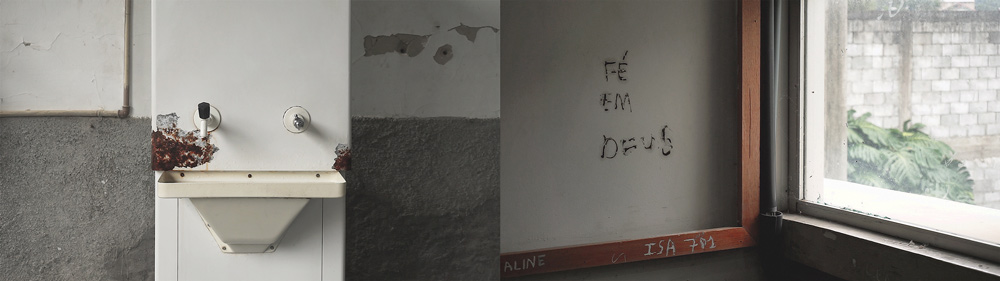 FÉ
EM
DEUS
ALINE
ISA 781